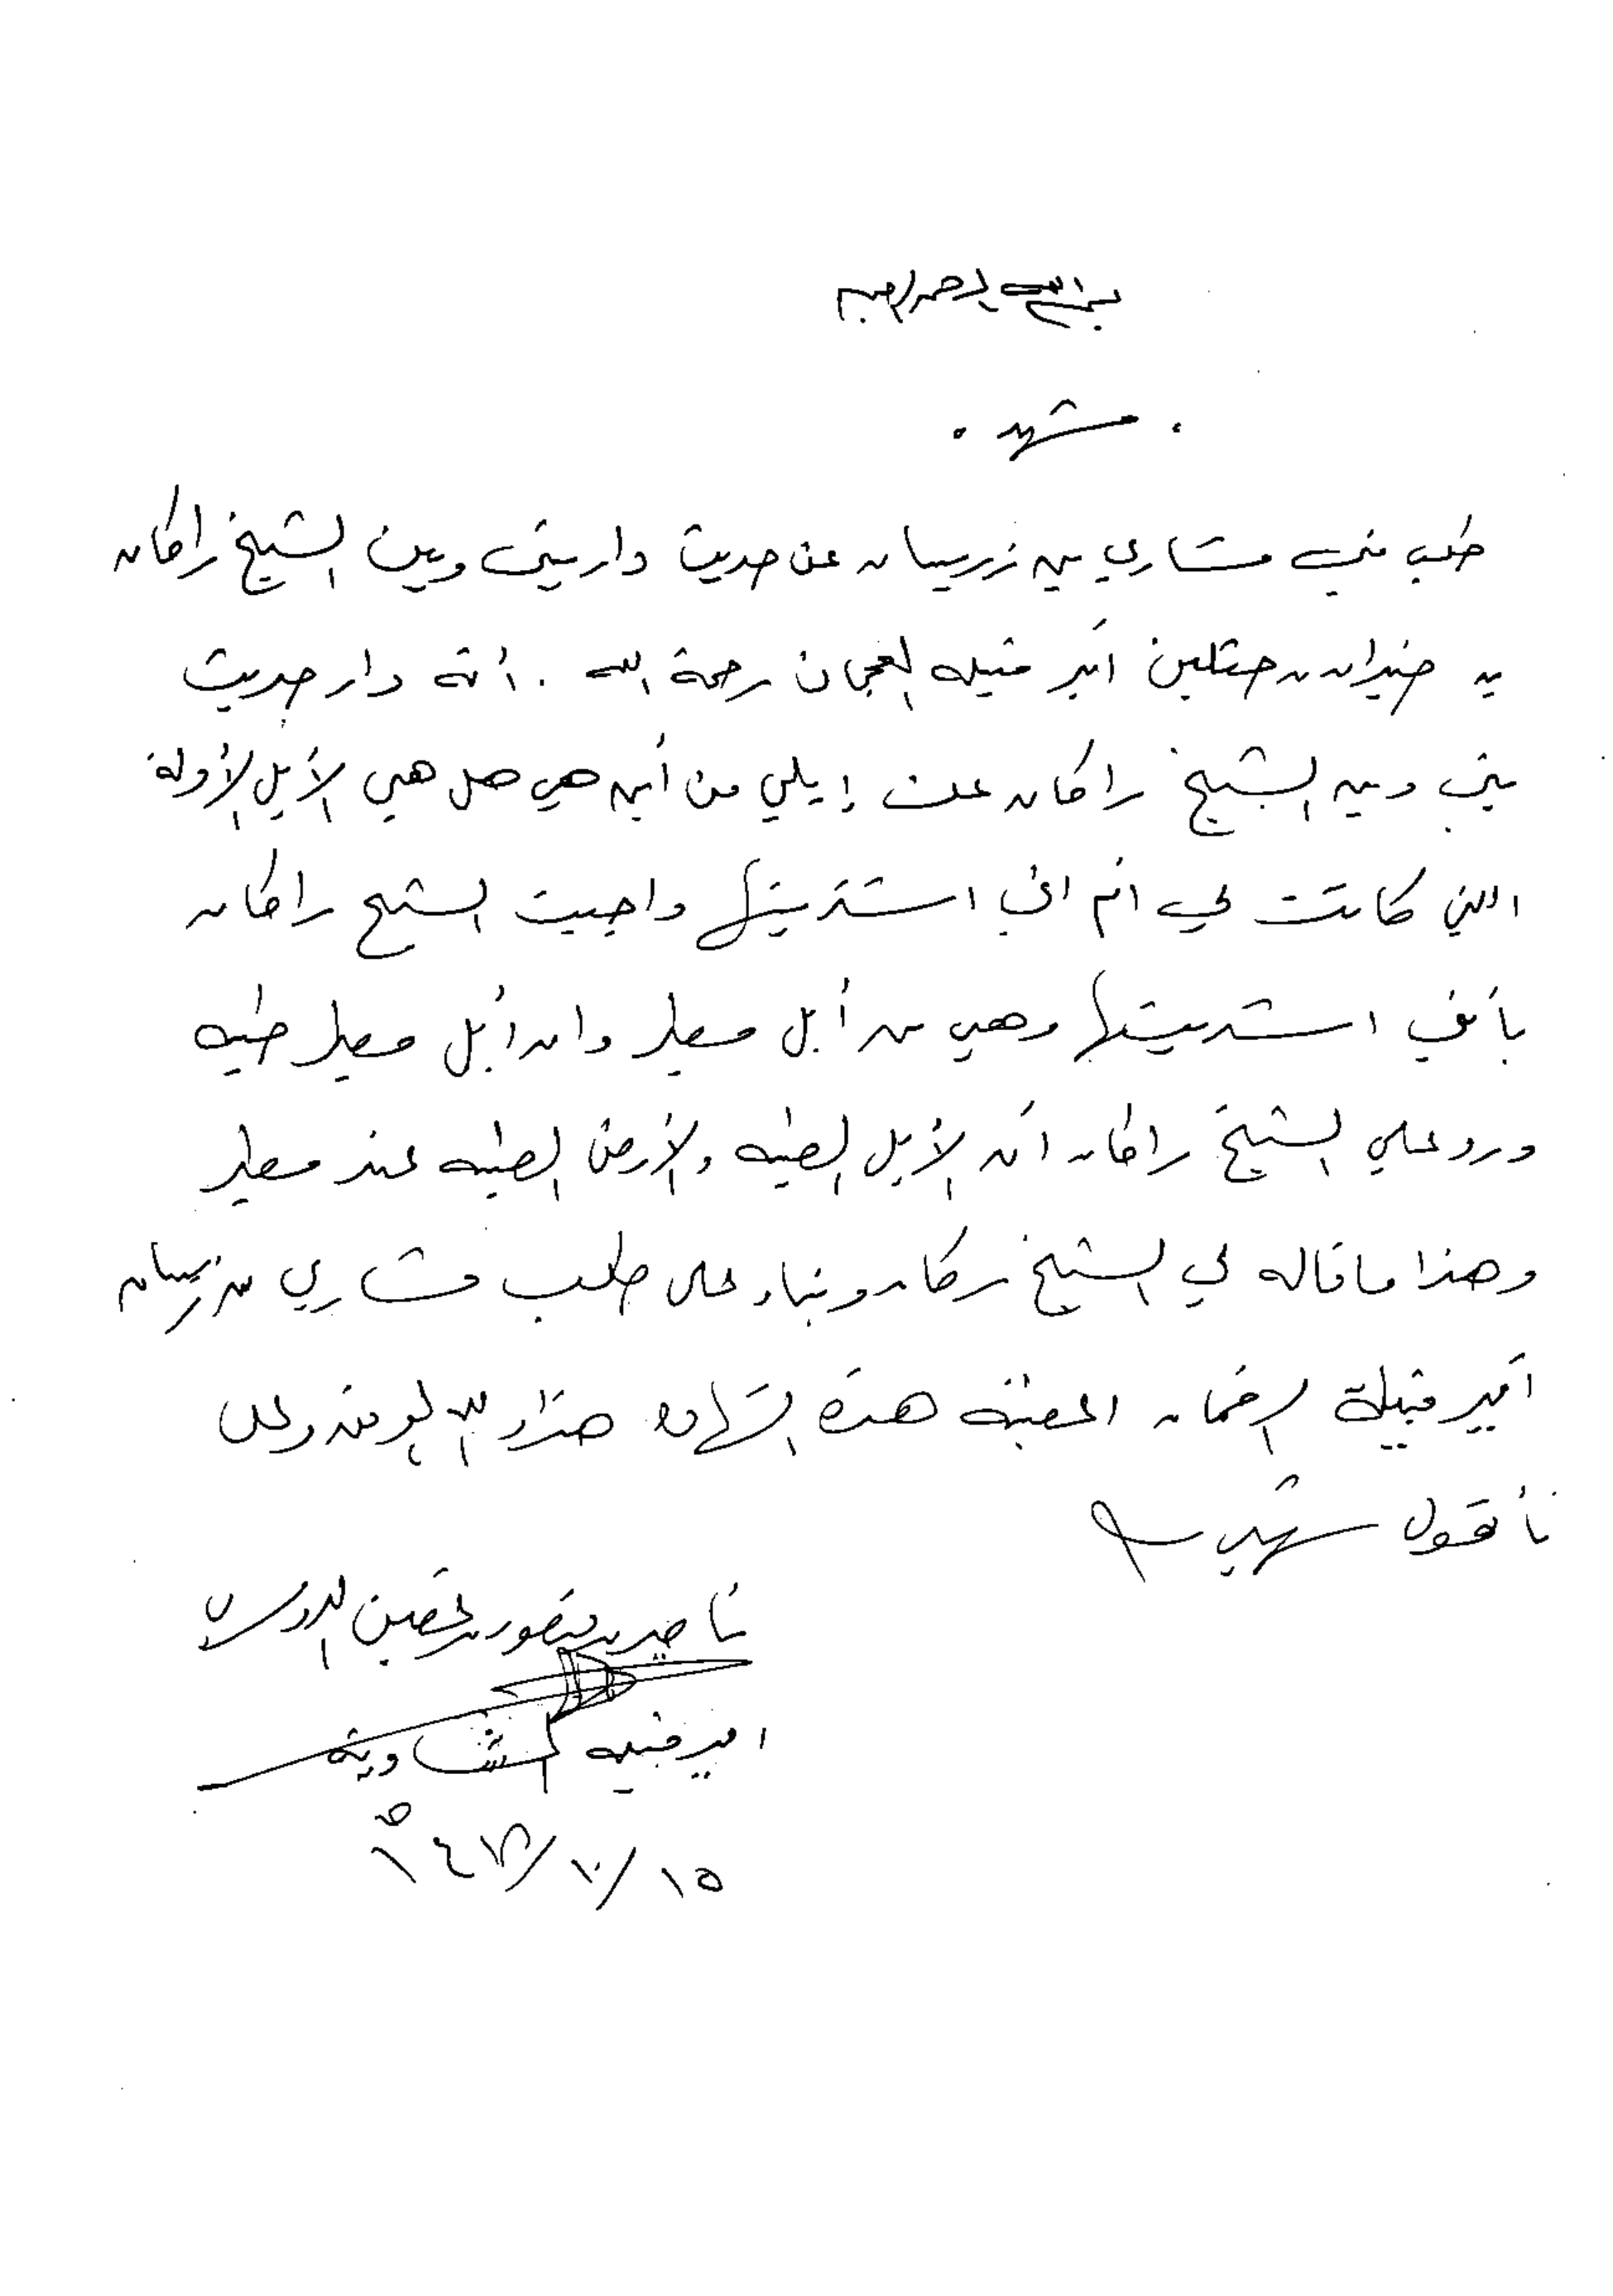 بسم الله الرحمن الرحيم
. مشهد .
طلب مني مشاري بن زريبان عن حديث دار بيني وبين الشيخ راكان
بن حثلين أمير قبيله العجمان رحمة الله . أنه دار حديث
بيني وبين الشيخ راكان عن إبلي من أين هي هل هي الأبل الأولة
اللتي كانت لي ام اني اشتريتها واجبت الشيخ راكان
بأنني اشتريتها وهي من أبل مطير وان أبل مطير طيبه
ورد علي الشيخ راكان أن الأبل الطيبه والأرض الطيبه عند مطير
وهذا ما قاله لي الشيخ ركان وبناء على طلب مشاري بن زريبان
أمير قبيلة الرخمان اعطيته هذه الشهاده هذا والله الموفق وعلى
ما نقول شهيد
ناصر بن منصور بن الدوسري
امير قبيله الشاوية
١٥/١٠/